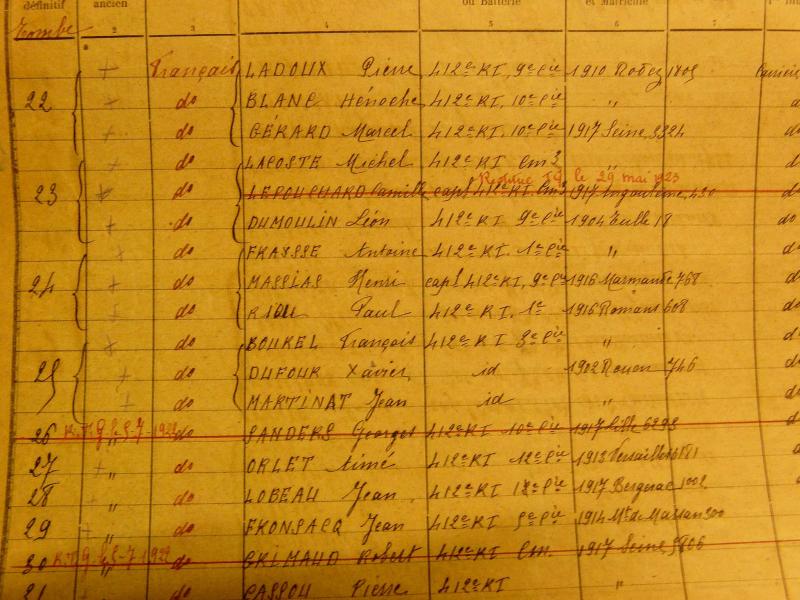 définitif ancien ou Batterie et Matricule
Tombe 2 3 4 5 6 7
Français LADOUX Pierre 412e RI, 9e Cie 1910 Rodez 1405
22 + do BLANC Hénoche 412e RI, 10e Cie "
+ do GÉRARD Marcel 412e RI, 10e Cie 1917 Seine, 3324
+ do LACOSTE Michel 412e RI Cm3 "
Restitué le 29 mai 1923
23 do LEPOUCHARD Camille capl 412e RI, Cm3 1917 Angoulême, 430
+ do DUMOULIN Léon 412e RI 9e Cie 1904 Tulle 18
+ do FRAYSSE Antoine 412e RI. 1e Cie "
24 + do MASSIAS Henri capl 412e RI, 9e Cie 1916 Marmande 768
do RIOU Paul 412e RI, 1e 1916 Romans 608
+ do BOUREL François 412e RI 3e Cie "
25 + do DUFOUR Xavier id 1902 Rouen 746
+ do MARTINAT Jean id "
26 1922 do SANDERS Georges 412e RI 10e Cie 1917 Lille 6298
27 + " do ORLET Aimé 412e RI 12e Cie 1913 Versailles
28 " do LOBEAU Jean 412e RI Cie 1917 Bergerac 1002
29 " do FRONSACQ Jean 412e RI 5e Cie 1914 Mt de Marsan 300
30 1922 " do GRIMAUD Robert 412e RI Cm. 1917 Seine, 3806
31 CASSOU Pierre 412e RI "